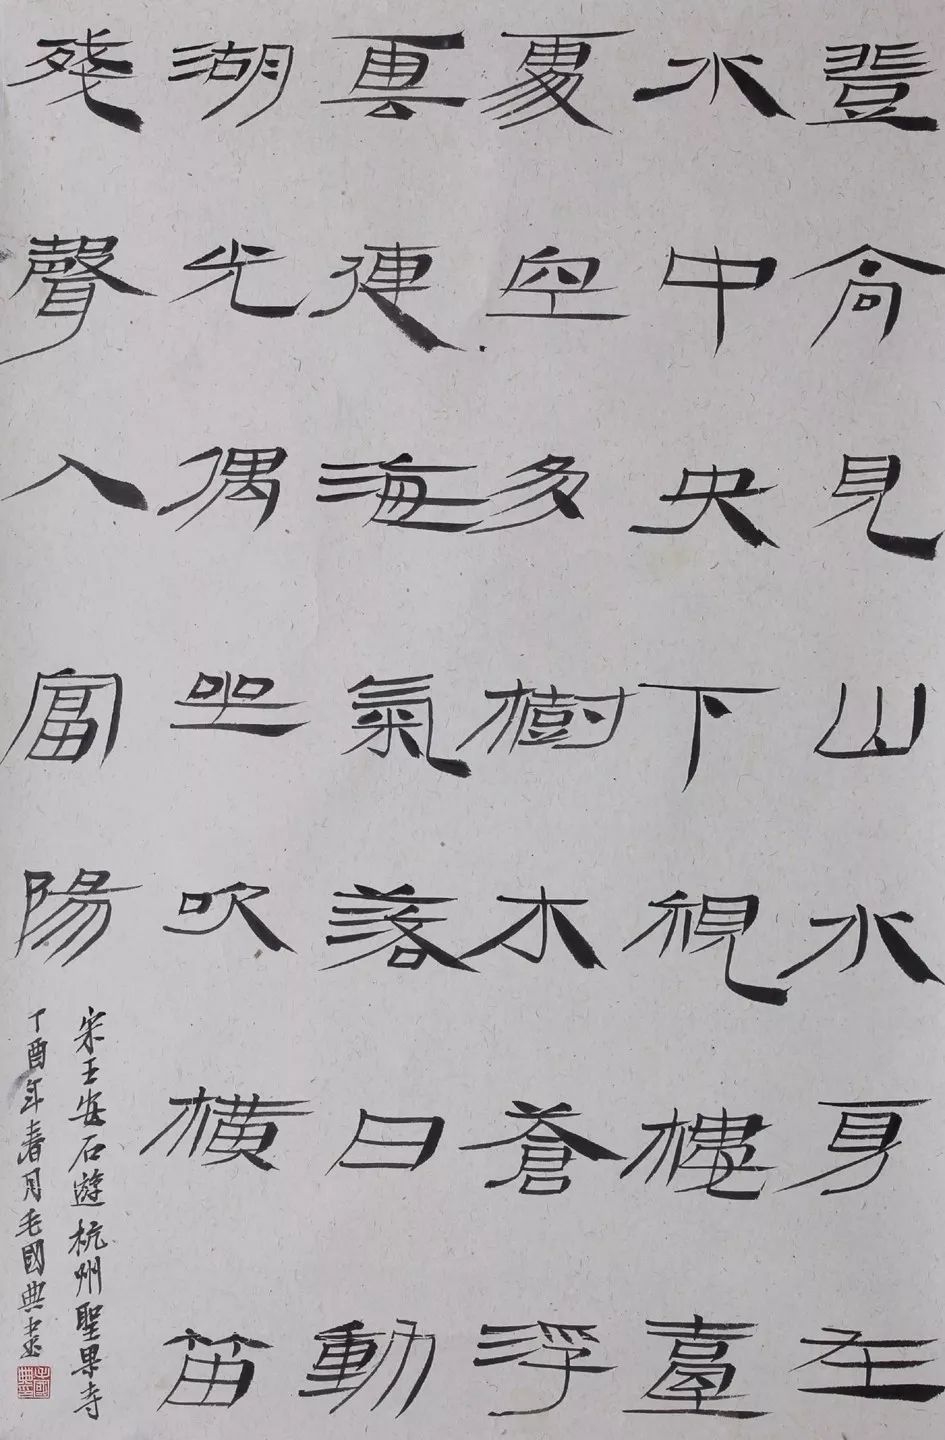 登高見山水身在
水中央下視樓臺
處空多樹木蒼浮
雲連海氣落日動
湖光偶坐吹横笛
殘聲入富陽
宋王安石遊杭州聖果寺
丁酉年春月毛國典書
毛國典印